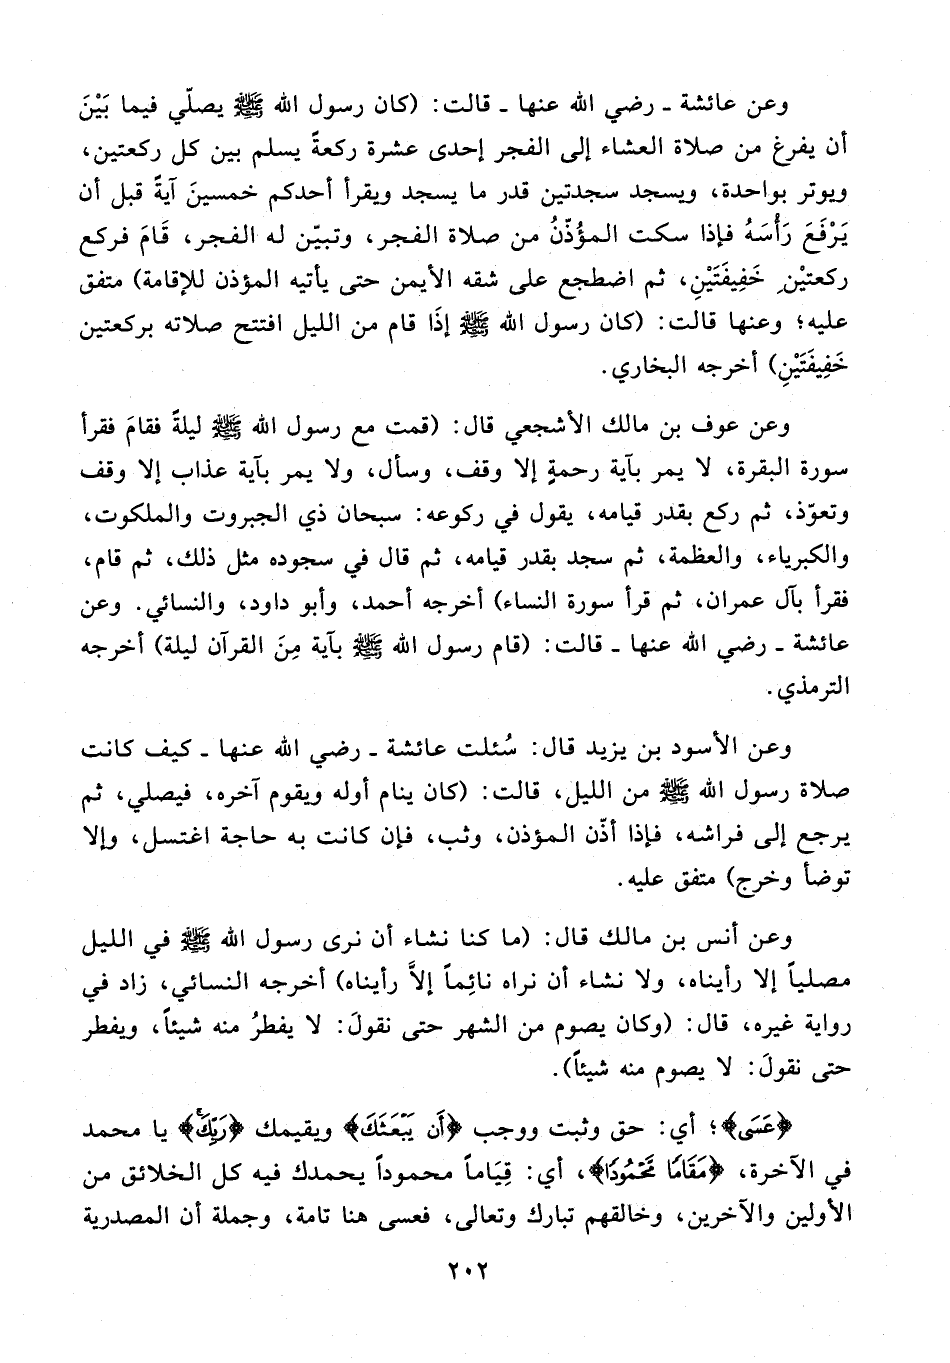 وعن عائشة ـ رضي الله عنها ـ قالت: (كان رسول الله ﷺ يصلّي فيما بَيْنَ
أن يفرغ من صلاة العشاء إلى الفجر إحدى عشرة ركعةً يسلم بين كل ركعتين،
ويوتر بواحدة، ويسجد سجدتين قدر ما يسجد ويقرأ أحدكم خمسينَ آيةً قبل أن
يَرْفَعَ رَأْسَهُ فإذا سكت المؤذّنُ من صلاة الفجر، وتبيّن له الفجر، قَامَ فركع
ركعتيْنِ خَفِيفَتَيْنِ، ثم اضطجع على شقه الأيمن حتى يأتيه المؤذن للإقامة) متفق
عليه؛ وعنها قالت: (كان رسول الله ﷺ إذَا قام من الليل افتتح صلاته بركعتين
خَفِيفَتَيْنِ) أخرجه البخاري.
وعن عوف بن مالك الأشجعي قال: (قمت مع رسول الله ﷺ ليلةً فقامَ فقرأ
سورة البقرة، لا يمر بآية رحمةٍ إلا وقف، وسأل، ولا يمر بآية عذاب إلا وقف
وتعوّذ، ثم ركع بقدر قيامه، يقول في ركوعه: سبحان ذي الجبروت والملكوت،
والكبرياء، والعظمة، ثم سجد بقدر قيامه، ثم قال في سجوده مثل ذلك، ثم قام،
فقرأ بآل عمران، ثم قرأ سورة النساء) أخرجه أحمد، وأبو داود، والنسائي. وعن
عائشة ـ رضي الله عنها ـ قالت: (قام رسول الله ﷺ بآية مِنَ القرآن ليلة) أخرجه
الترمذي.
وعن الأسود بن يزيد قال: سُئلت عائشة ـ رضي الله عنها ـ كيف كانت
صلاة رسول الله ﷺ من الليل، قالت: (كان ينام أوله ويقوم آخره، فيصلي، ثم
يرجع إلى فراشه، فإذا أذّن المؤذن، وثب، فإن كانت به حاجة اغتسل، وإلا
توضأ وخرج) متفق عليه.
وعن أنس بن مالك قال: (ما كنا نشاء أن نرى رسول الله ﷺ في الليل
مصلياً إلا رأيناه، ولا نشاء أن نراه نائِماً إلاَّ رأيناه) أخرجه النسائي، زاد في
رواية غيره، قال: (وكان يصوم من الشهر حتى نقولَ: لا يفطرُ منه شيئاً، ويفطر
حتى نقولَ: لا يصوم منه شيئاً).
﴿عَسَى﴾؛ أي: حق وثبت ووجب ﴿أَن يَبْعَثَكَ﴾ ويقيمك ﴿رَبُّكَ﴾ يا محمد
في الآخرة، ﴿مَقَامًا مَّحْمُودًا﴾، أي: قِيَاماً محموداً يحمدك فيه كل الخلائق من
الأولين والآخرين، وخالقهم تبارك وتعالى، فعسى هنا تامة، وجملة أن المصدرية
٢٠٢